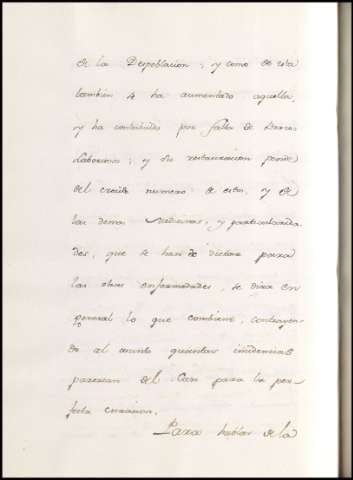 de la Despoblacion; y como de esta
tambien se ha aumentado aquella,
y ha contribuido por falta de brazos
Laboriosos; y su restauracion pende
del crecido numero de estos, y de
las demas Medicinas, y particularida
des, que se han de dictar para
las otras enfermedades, se dira en
general lo que combiene, contrayen
do al asunto quantas incidencias
parezcan del Caso para la per
fecta curacion.
Para hablar de la